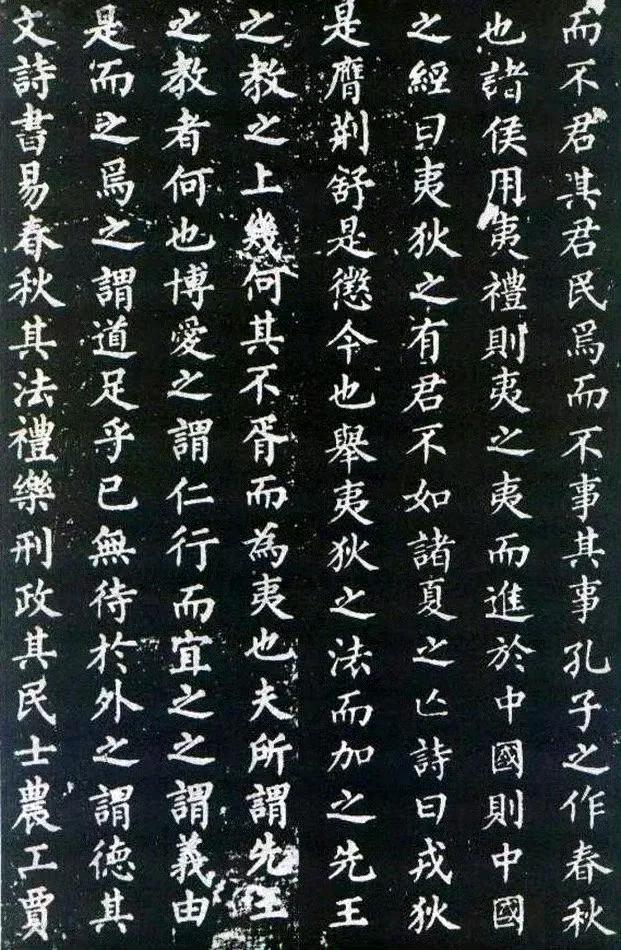 而不君其君民焉而不事其事孔子之作春秋
也諸侯用夷禮則夷之夷而進於中國則中國
之經曰夷狄之有君不如諸夏之亡詩曰戎狄
是膺荆舒是懲今也舉夷狄之法而加之先王
之教之上幾何其不胥而為夷也夫所謂先王
之教者何也博愛之謂仁行而宜之之謂義由
是而之焉之謂道足乎已無待於外之謂德其
文詩書易春秋其法禮樂刑政其民士農工賈